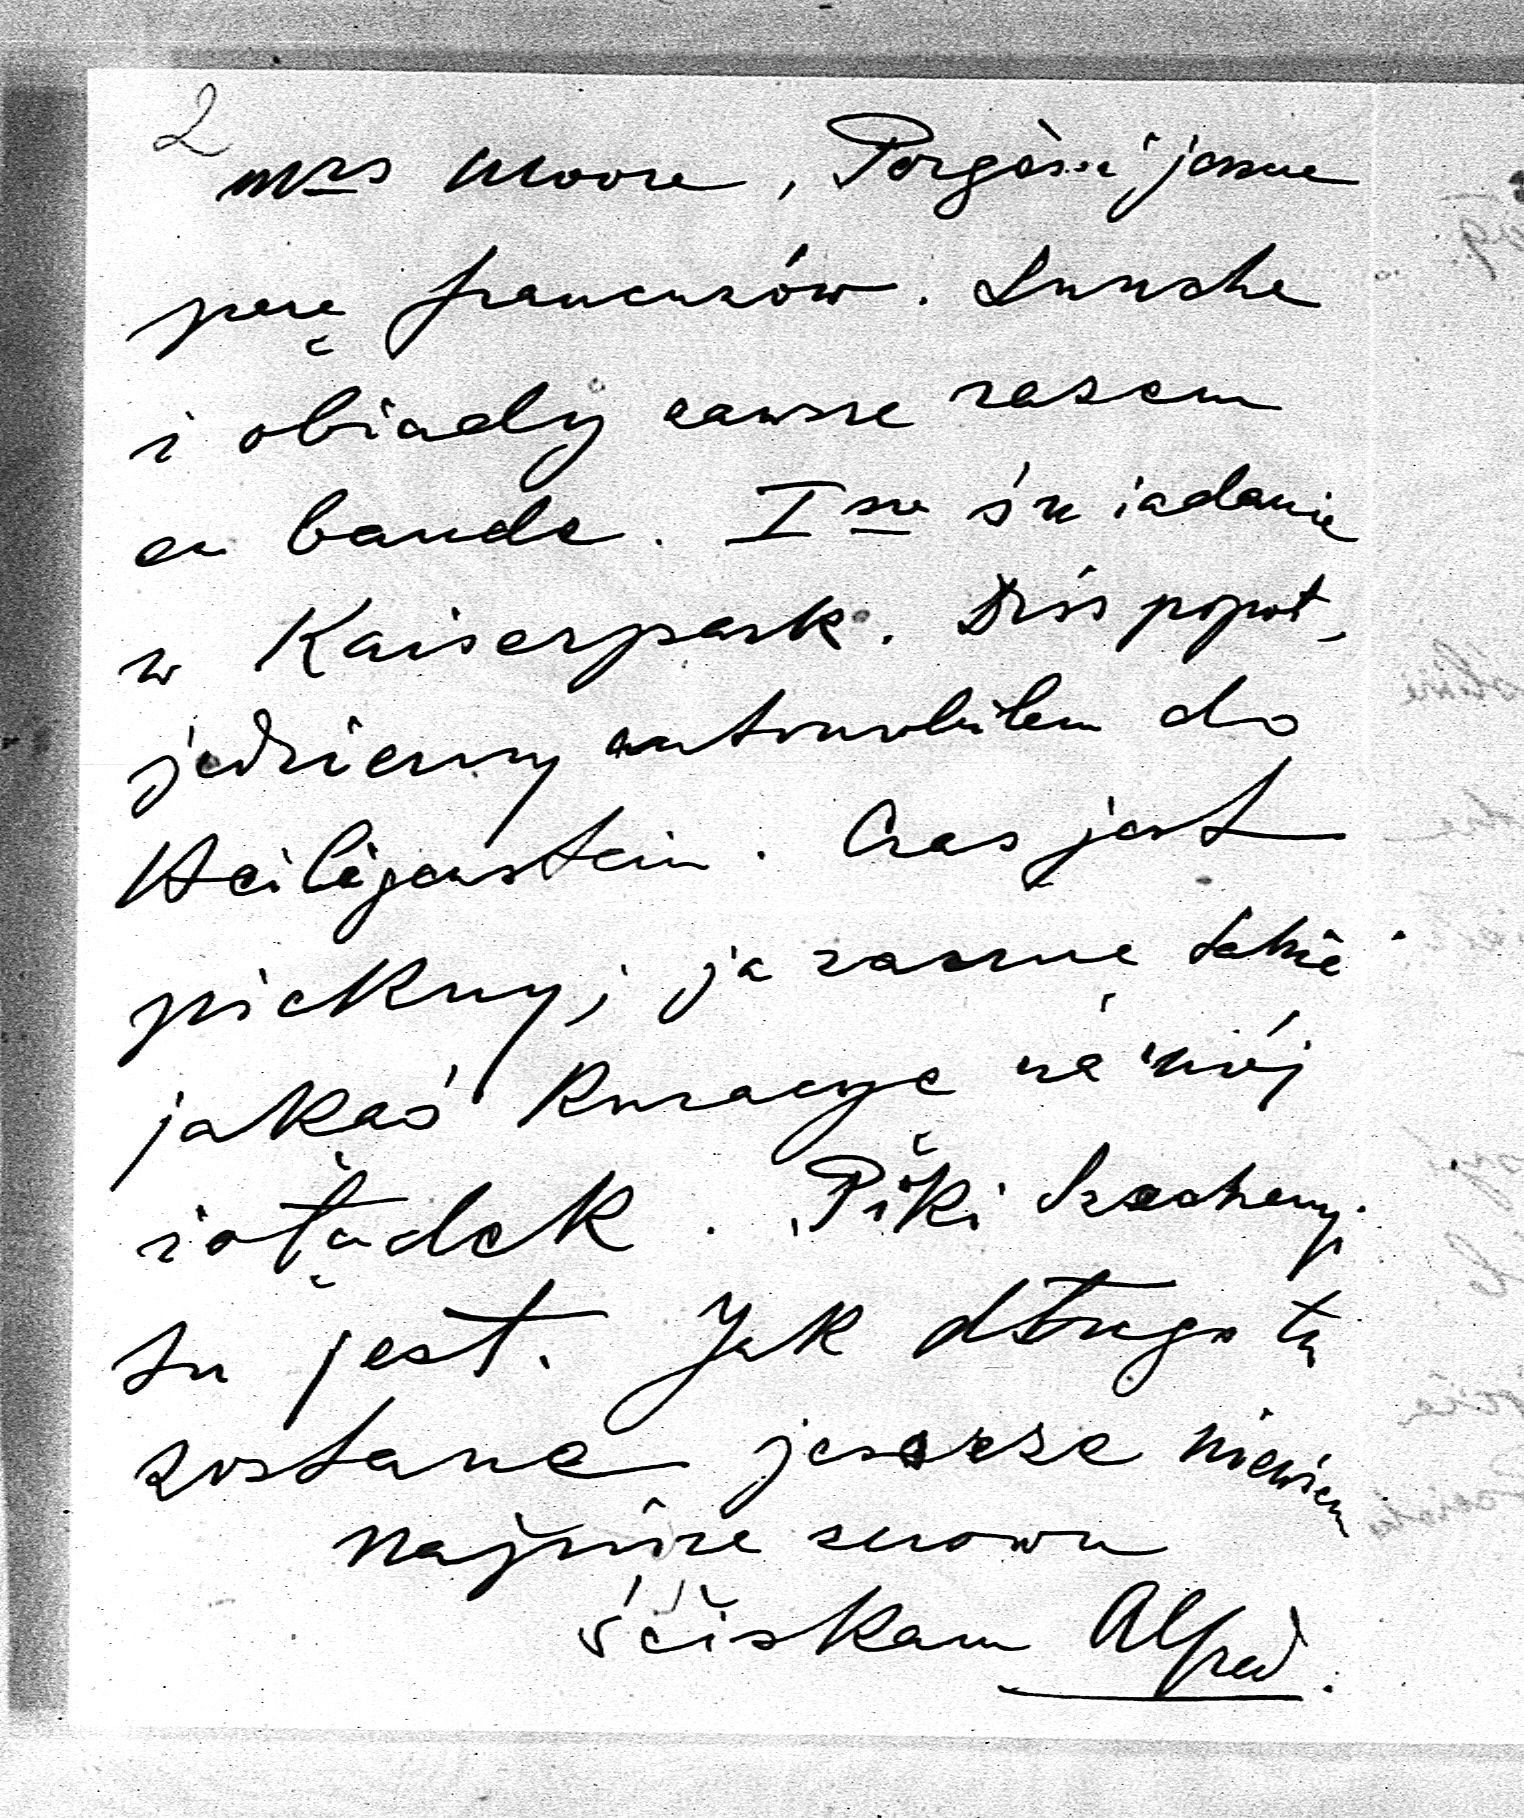 2
Mrs Moore, jeszcze
parę francuzów. Lunche
i obiady zawsze razem
en bande. Isze śniadanie
w Kaiserpark. Dziś popoł,
jedziemy automobilem do
Heiligenstein. Czas jest
piekny; ja zacznę także
jakaś kuracye na mój
żołądek. Piki Szechenyi
tu jest. Jak długo tu
zostane jeszcze niewiem
Najmize znowu
ściskam Alfred.